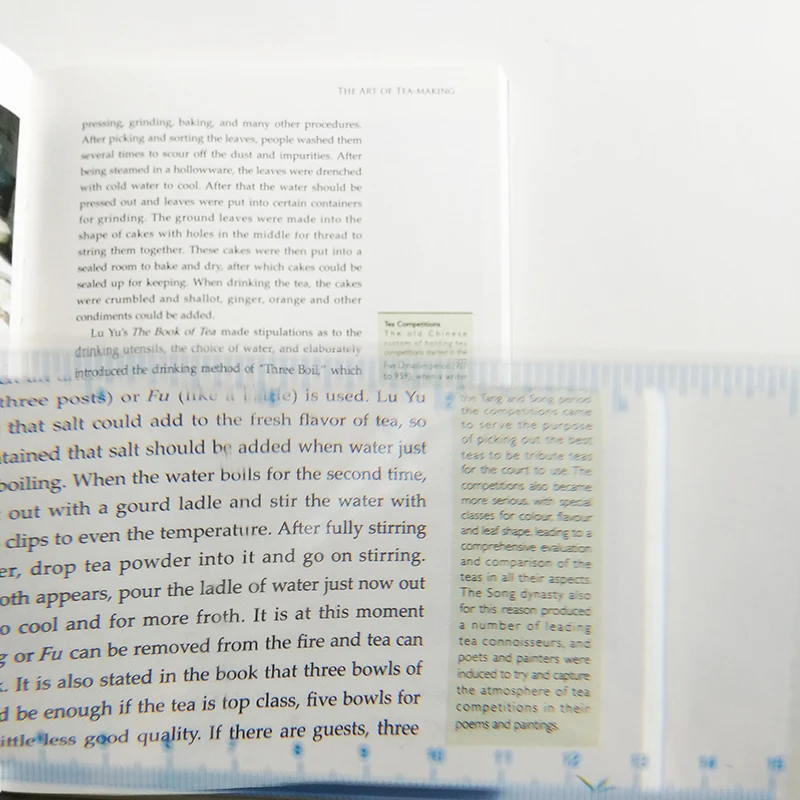 THE ART OF TEA-MAKING
pressing, grinding, baking, and many other procedures.
After picking and sorting the leaves, people washed them
several times to scour off the dust and impurities. After
being steamed in a hollowware, the leaves were drenched
with cold water to cool. After that the water should be
pressed out and leaves were put into certain containers
for grinding. The ground leaves were made into the
shape of cakes with holes in the middle for thread to
string them together. These cakes were then put into a
sealed room to bake and dry, after which cakes could be
sealed up for keeping. When drinking the tea, the cakes
were crumbled and shallot, ginger, orange and other
condiments could be added.
Lu Yu's The Book of Tea made stipulations as to the
drinking utensils, the choice of water, and elaborately
introduced the drinking method of "Three Boil," which
three posts) or Fu (like a) is used. Lu Yu
that salt could add to the fresh flavor of tea, so
tained that salt should be added when water just
boiling. When the water boils for the second time,
out with a gourd ladle and stir the water with
clips to even the temperature. After fully stirring
er, drop tea powder into it and go on stirring.
oth appears, pour the ladle of water just now out
o cool and for more froth. It is at this moment
g or Fu can be removed from the fire and tea can
. It is also stated in the book that three bowls of
d be enough if the tea is top class, five bowls for
little less good quality. If there are guests, three
Tea Competitions
The old Chinese
custom of holding tea
competitions started in the
Five Dynasties period (907
to 959), when a writer
the Tang and Song period
the competitions came
to serve the purpose
of picking out the best
teas to be tribute teas
for the court to use. The
competitions also became
more serious, with special
classes for colour, flavour
and leaf shape, leading to a
comprehensive evaluation
and comparison of the
teas in all their aspects.
The Song dynasty also
for this reason produced
a number of leading
tea connoisseurs, and
poets and painters were
induced to try and capture
the atmosphere of tea
competitions in their
poems and paintings.
10 11 12 13 14 15